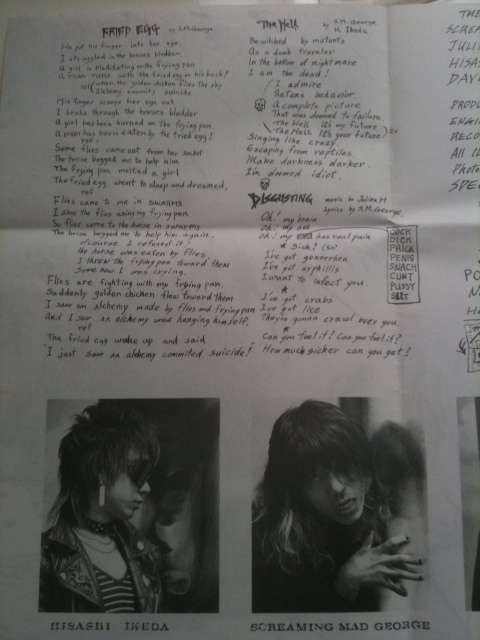 FRIED EGG by S.M.George.
He put his finger into her eye.
I struggled in the horses bladder.
a girl is Meditating on the frying pan
a man runs with the fried egg on his back!
ref (when the golden chicken flies the sky
alchemy commits suicide
His finger scoops her eye out
I broke through the horses bladder
a girl has been burned on the frying pan
a man has been eaten by the fried egg!
ref.
Some flies came out from her socket
The horse begged me to help him
The frying pan melted a girl
The fried egg went to sleep and dreamed,
ref.
Flies came to me in SWARMS
I slap the flies using my frying pan
So flies come to the horse in swarms
The horse begged me to help him again,
ofcourse I refused it!
the horse was eaten by flies
I threw the frying pan toward them
Some how I was crying.
Flies are fighting with my frying pan.
Suddenly golden chicken flew toward them
I saw an alchemy made by flies and frying pan
And I saw an alchemy was hanging himself.
ref
The fried egg woke up and said
I just saw an alchemy commited suicide!
The Hell by S.M. George,
H. Ikeda
Bewitched by mutants
As a dumb traveler
In the bottom of nightmare
I am the dead!
I admire
Satans behavior.
A complete picture
That was doomed to failure
The Hell It's my future
The Hell It's your future) 2x
Singing like crazy,
Escaphy from reptiles
Make darkness darker.
I'm doomed idiot.
DISGUSTING music by Julien H
Lyrics by S.M.George,
Oh! my brain
oh! my ass
oh! my has real pain
★ Sick! (3x)
I've got gonorrhea
I've got syphillis
I want to infect you
★
I've got crabs
I've got lice
They're gonna crawl over you
★
Can you feel it? Can you feel it?
How much sicker can you get?
COCK
DICK
PRICK
PENIS
SNACH
CUNT
PUSSY
SLIT
THE
SCREA
JULI
HISAS
DAV
PRODU
ENGI
RECO
All l
Photo
SPE
PO
N
H
HISASHI IKEDA
SCREAMING MAD GEORGE